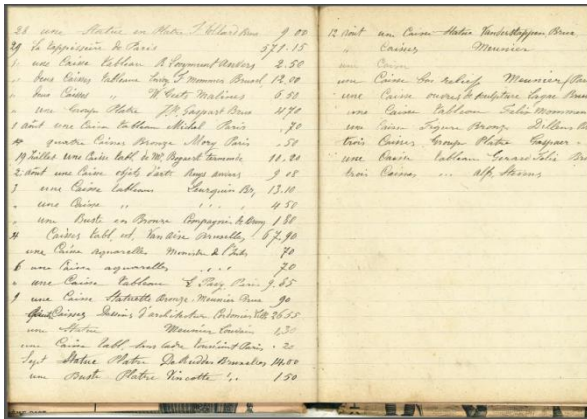 28 une Statue en Platre J. Brux 9.00
29 la tappisserie de Paris 571.15
1. une Caisse tableau R Anvers 2.50
" Caisses tableaux Mommens Brussel, 12,00
" Caisses W Geets Malines 6.50
" un Groupe Platre J. Gaspart Brux 4.70
1 août une Caisse tableau Michel Paris .70
4 quatre Caisses Bronze Mory Paris .50
19 Juillet une Caisse tabl. de Mr. Bogaert Termonde 10.20
2 août une Caisse objets d'arts Ruys anvers
3 une Caisse tableaux Br, 13.10
" une Caisse " " 4 50
" un Buste en Bronze Compagnie de 1.80
4 Caisses tabl. Van Aise Bruxelles 67.90
une Caisse aquarelles Ministre de l'Inter 70
6 une Caisse aquarelles 70
" une Caisse tableau Paris 9.65
9 une Caisse Statuette Bronze Meunier Brux 90
Caisses Dessins d'architecture Cordonnier Lille 26.55
une Statue Meunier Louvain 1,30
une Caisse tabl. sans cadre Paris . 20
Sept Statue Platre De Rudder Bruxelles 14.00
un Buste Platre Vincotte 1 50
12 août une Caisse Statue Vanderstappen Brux
" Caisses Meunier
une Caisse
une Caisse bas relief Meunier
une Caisse de sculpture
une Caisse tableau Felix
une Caisse Figure Bronze Dillens
trois Caisses Groupe Platre Gaspar
une Caisse tableau Gerard Felix
trois Caisses Alf. Stevens